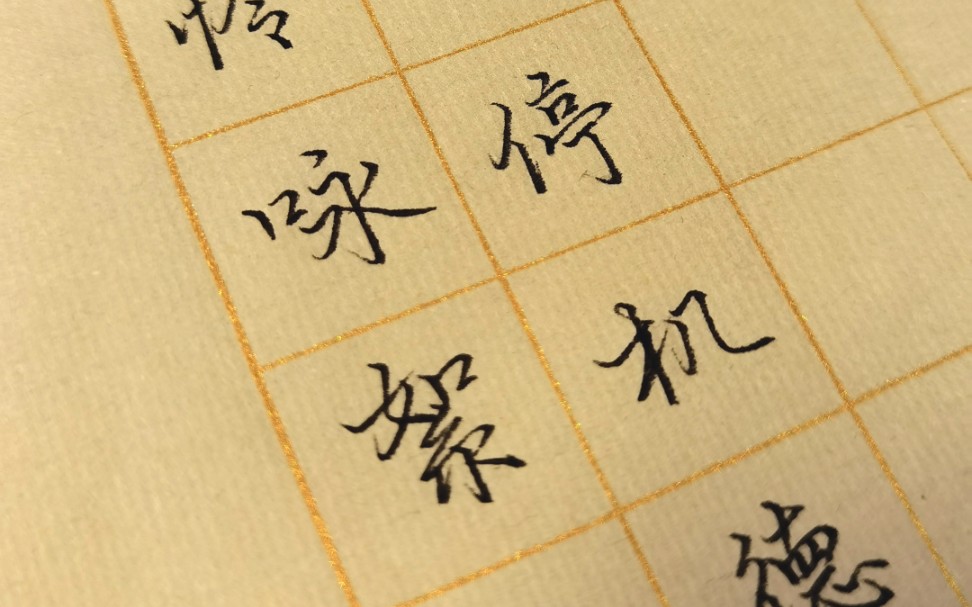 停机德
怜咏絮